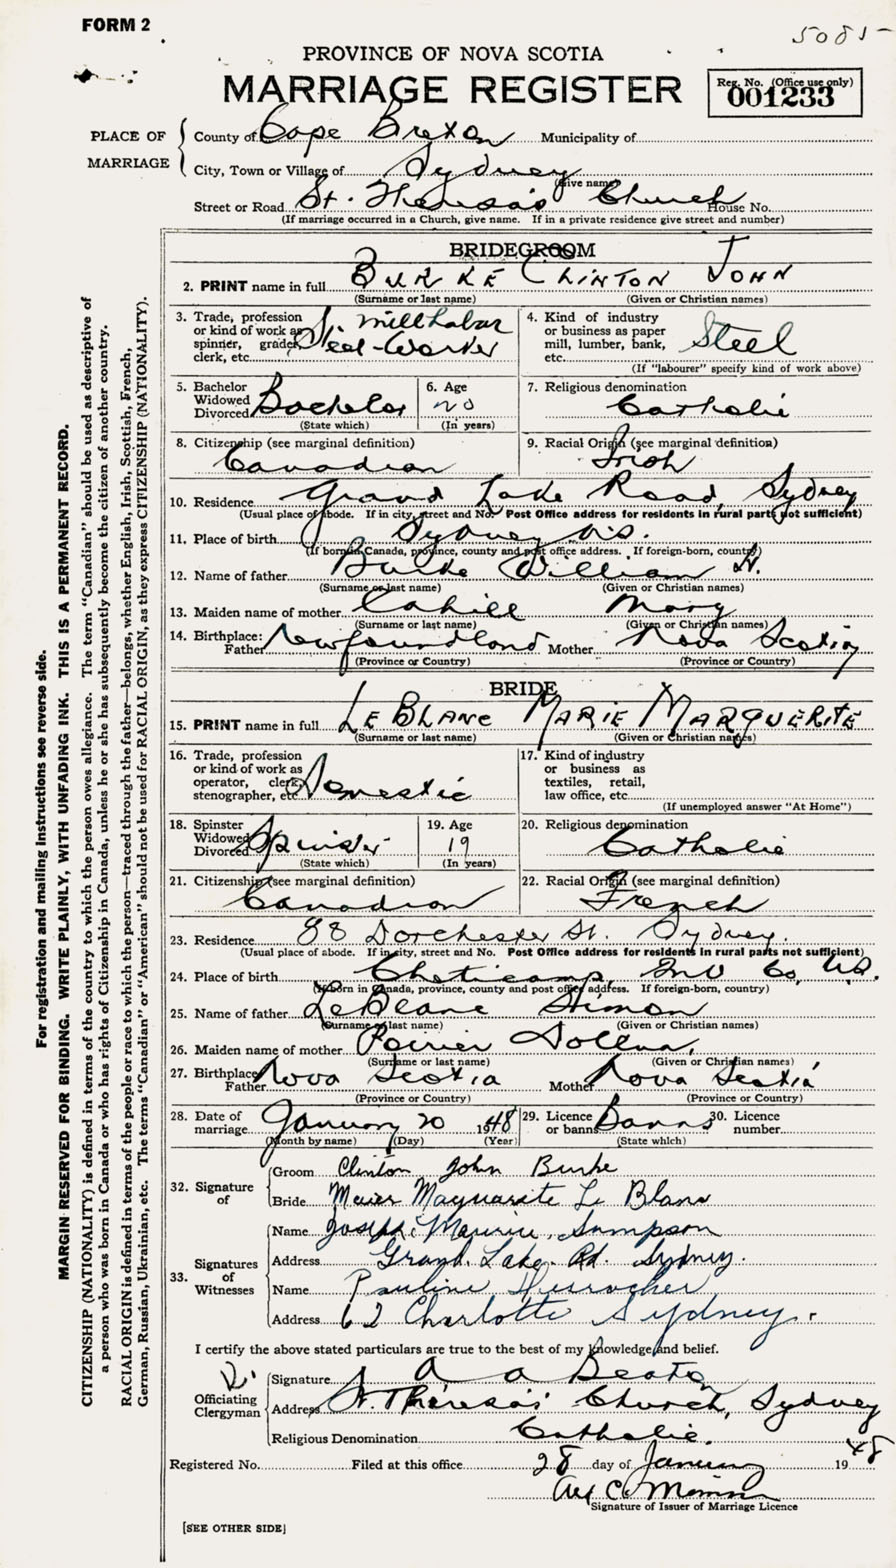 FORM 2
5085-
PROVINCE OF NOVA SCOTIA
MARRIAGE REGISTER
Reg. No. (Office use only)
001233
PLACE OF MARRIAGE
County of Cape Breton Municipality of
City, Town or Village of Sydney
(Give name)
Street or Road St. Theresa's Church House No.
(If marriage occurred in a Church, give name. If in a private residence give street and number)
BRIDEGROOM
2. PRINT name in full BURKE CLINTON JOHN
(Surname or last name) (Given or Christian names)
3. Trade, profession or kind of work as spinner, grader, clerk, etc. mill Labor Steel-Worker
4. Kind of industry or business as paper mill, lumber, bank, etc. Steel
(If "labourer" specify kind of work above)
5. Bachelor Widowed Divorced Bachelor
(State which)
6. Age 20
(In years)
7. Religious denomination Catholic
8. Citizenship (see marginal definition) Canadian
9. Racial Origin (see marginal definition) Irish
10. Residence Grand Lake Road, Sydney
(Usual place of abode. If in city, street and No. Post Office address for residents in rural parts not sufficient)
11. Place of birth Sydney N.S.
(If born in Canada, province, county and post office address. If foreign-born, country)
12. Name of father Burke William H.
(Surname or last name) (Given or Christian names)
13. Maiden name of mother Cahill Mary
(Surname or last name) (Given or Christian names)
14. Birthplace: Father Newfoundland Mother Nova Scotia
(Province or Country) (Province or Country)
BRIDE
15. PRINT name in full LEBLANC MARIE MARGUERITE
(Surname or last name) (Given or Christian names)
16. Trade, profession or kind of work as operator, clerk, stenographer, etc. Domestic
17. Kind of industry or business as textiles, retail, law office, etc.
(If unemployed answer "At Home")
18. Spinster Widowed Divorced Spinster
(State which)
19. Age 19
(In years)
20. Religious denomination Catholic
21. Citizenship (see marginal definition) Canadian
22. Racial Origin (see marginal definition) French
23. Residence 88 Dorchester St. Sydney.
(Usual place of abode. If in city, street and No. Post Office address for residents in rural parts not sufficient)
24. Place of birth Cheticamp, Inv Co, N.S.
(If born in Canada, province, county and post office address. If foreign-born, country)
25. Name of father LeBlanc Simon
(Surname or last name) (Given or Christian names)
26. Maiden name of mother Poirier
(Surname or last name) (Given or Christian names)
27. Birthplace Father Nova Scotia Mother Nova Scotia
(Province or Country) (Province or Country)
28. Date of marriage January 20 1948
(Month by name) (Day) (Year)
29. Licence or banns Banns
(State which)
30. Licence number
32. Signature of
Groom Clinton John Burke
Bride Le Blanc
33. Signatures of Witnesses
Name Joseph Maurice Sampson
Address Grand Lake Rd. Sydney.
Name Pauline Durocher
Address 62 Charlotte Sydney.
I certify the above stated particulars are true to the best of my knowledge and belief.
Officiating Clergyman
Signature A A Beaton
Address St. Theresa's Church, Sydney
Religious Denomination Catholic.
Registered No. Filed at this office 28 day of January 1948
Signature of Issuer of Marriage Licence
[SEE OTHER SIDE]
For registration and mailing instructions see reverse side.
MARGIN RESERVED FOR BINDING. WRITE PLAINLY, WITH UNFADING INK. THIS IS A PERMANENT RECORD.
CITIZENSHIP (NATIONALITY) is defined in terms of the country to which the person owes allegiance. The term "Canadian" should be used as descriptive of
a person who was born in Canada or who has rights of Citizenship in Canada, unless he or she has subsequently become the citizen of another country.
RACIAL ORIGIN is defined in terms of the people or race to which the person—traced through the father—belongs, whether English, Irish, Scottish, French,
German, Russian, Ukrainian, etc. The terms "Canadian" or "American" should not be used for RACIAL ORIGIN, as they express CITIZENSHIP (NATIONALITY).